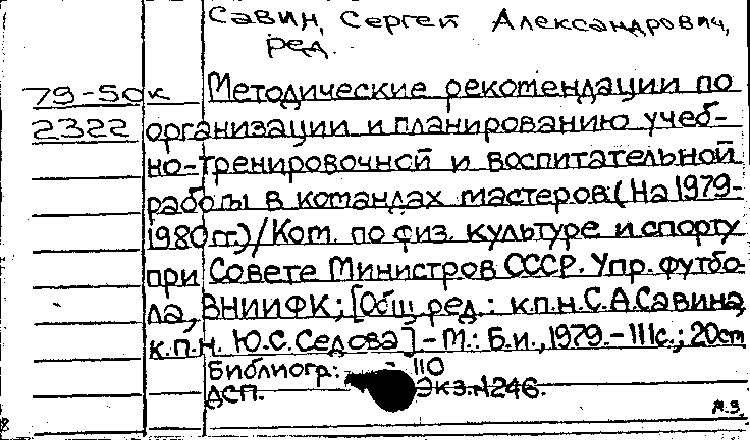 Савин, Сергей Александрович,
ред.
79-50к Методические рекомендации по
2322 организации и планированию учеб-
но-тренировочной и воспитательной
работы в командах мастеров (На 1979-
1980 гг.) / Ком. по физ. культуре и спорту
при Совете Министров СССР. Упр. футбо-
ла, ВНИИФК; [Общ. ред.: к.п.н. С.А. Савина,
к.п.н. Ю.С. Седова] - М.: Б.и., 1979. - 111с.; 20cm
Библиогр.: 110
ДСП. Экз.N246.